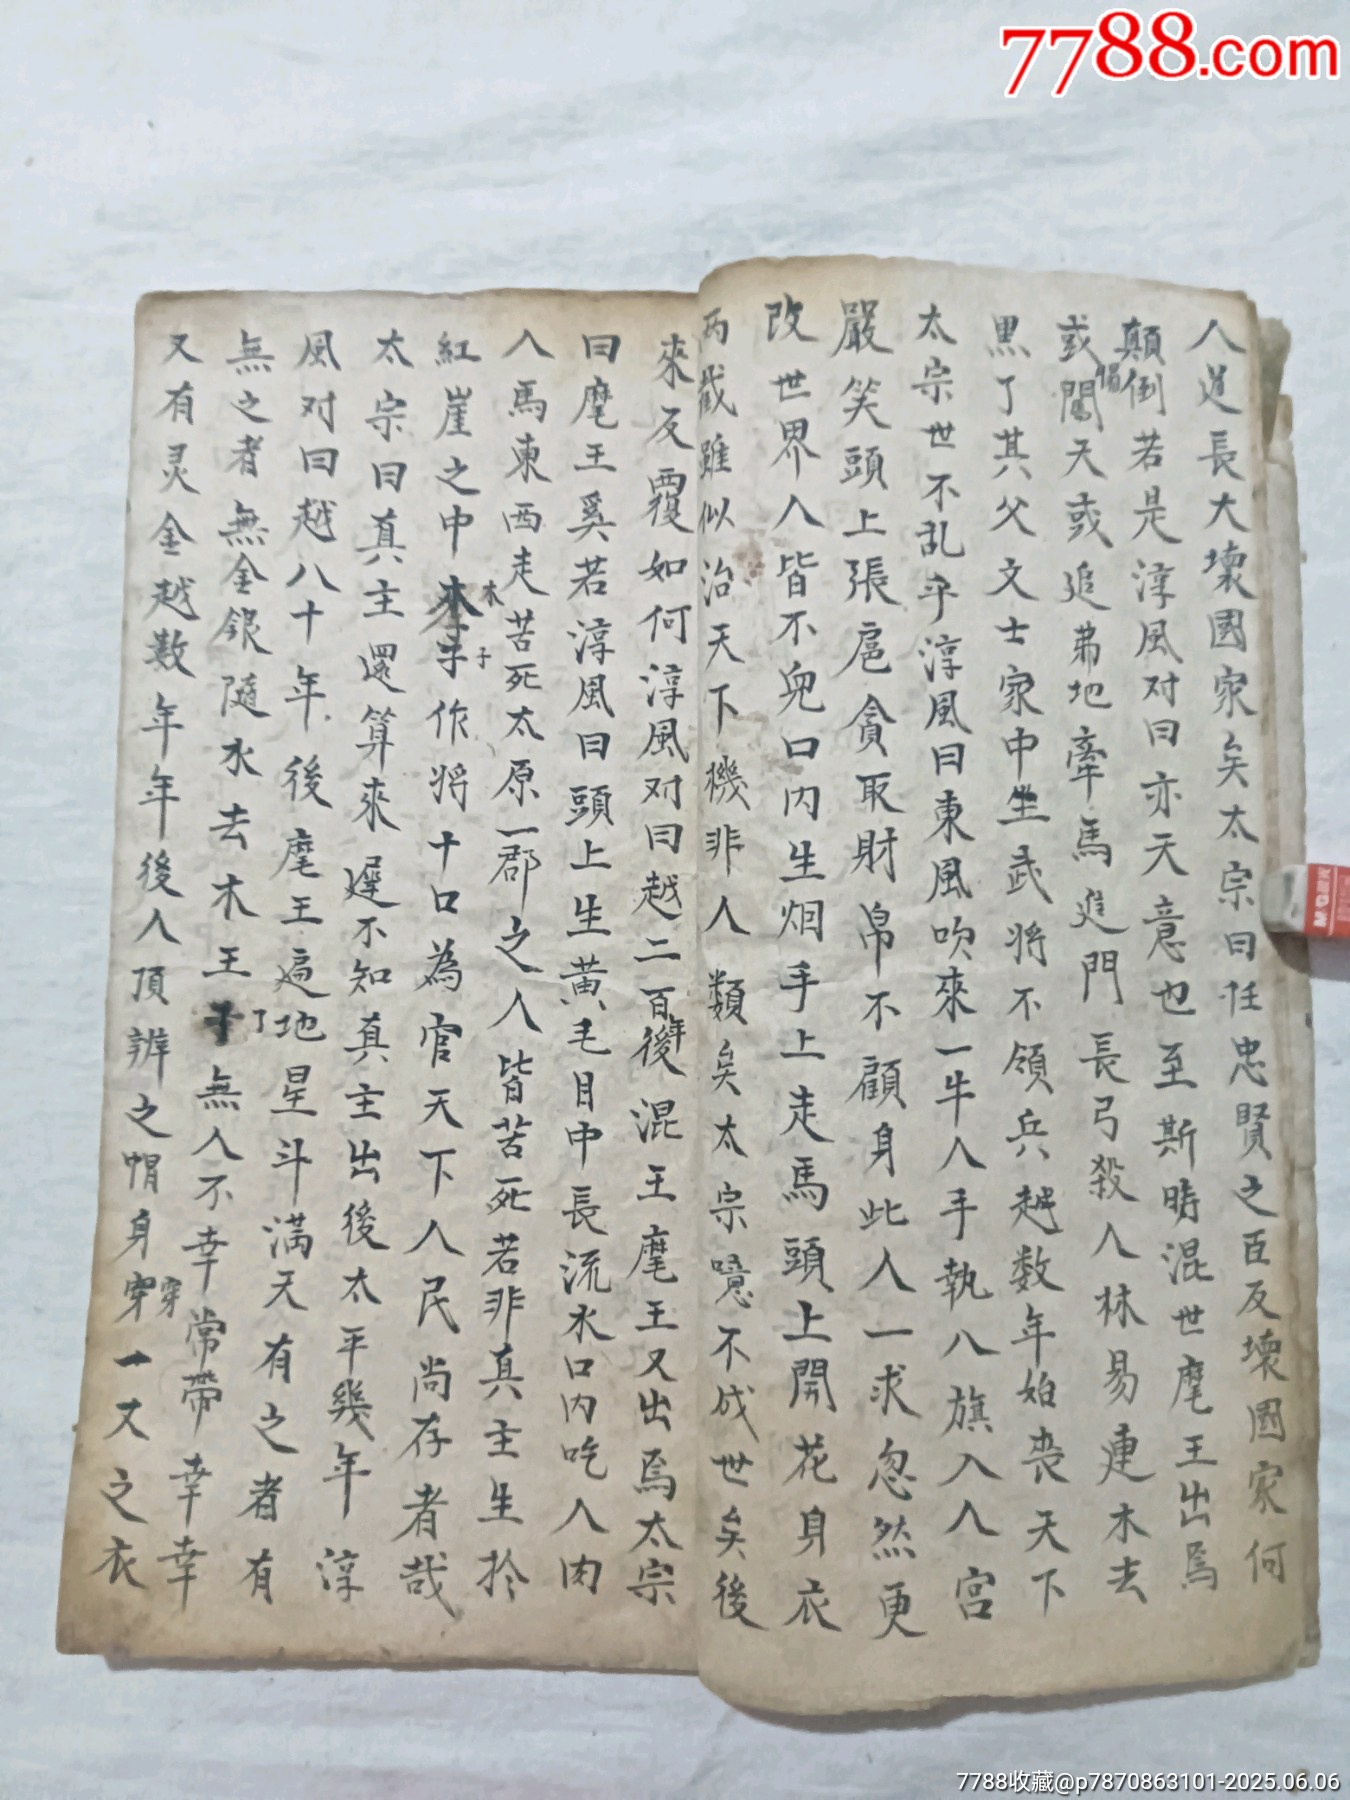 7788.com
人道長大壞國家矣太宗曰任忠賢之臣反壞國家何
顛倒若是淳風对曰亦天意也至斯時混世麾王出焉
或闖天或追弟地牽馬進門長弓殺人林易連木去
帽
黑了其父文士家中坐武将不領兵越数年始丧天下
太宗世不乱乎淳風曰東風吹來一牛人手執八旗入人宫
嚴笑頭上張扈貪取財帛不顧身此人一求忽然更
改世界人皆不兜口内生烟手上走馬頭上開花身衣
两截雖似治天下機非人類矣太宗噫不成世矣後
來反覆如何淳風对曰越二百年後混王麾王又出焉太宗
曰麾王奚若淳風曰頭上生黄毛目中長流水口内吃人肉
人馬東西走苦死太原一郡之人皆苦死若非真主生於
紅崖之中來子作将十口為官天下人民尚存者哉
木子
太宗曰真主還算來遲不知真主出後太平幾年淳
風对曰越八十年後麾王遍地星斗满天有之者有
了
無之者無金銀隨水去木王子無人不幸常帶幸幸
又有灵金越数年年後人頂辨之帽身穿一丈之衣
穿
MG2K
7788收藏@p7870863101-2025.06.06